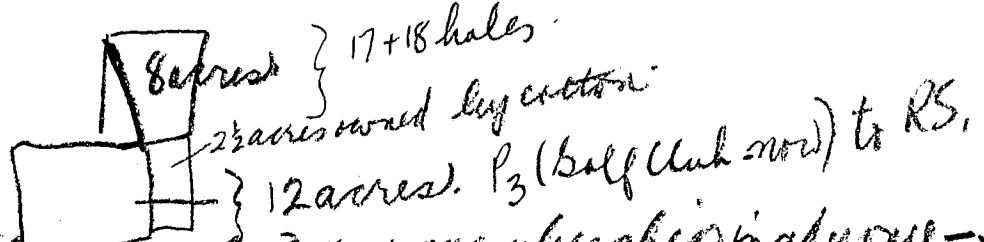 8 acres } 17 + 18 holes.
2½ acres owned by cotton.
} 12 acres. P3 (Golf Club now) to RS,